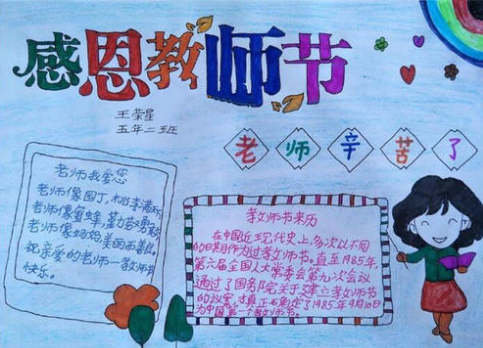 感恩教师节
王荣星
五年二班
老师辛苦了
老师我爱您
老师像园丁,桃李满杯,
老师像蜜蜂,勤劳勇敢,
老师像妈妈,美丽西善良,
祝亲爱的老师一教师节
快乐。
教师节来历
在中国近现代史上,多次以不同
的日期作为过教师节。直至1985年,
第六届全国人大常委会第九次会议
通过了国务院关于建立教师节
的议案,才真正确定了1985年9月10日
为中国第一个教师节。